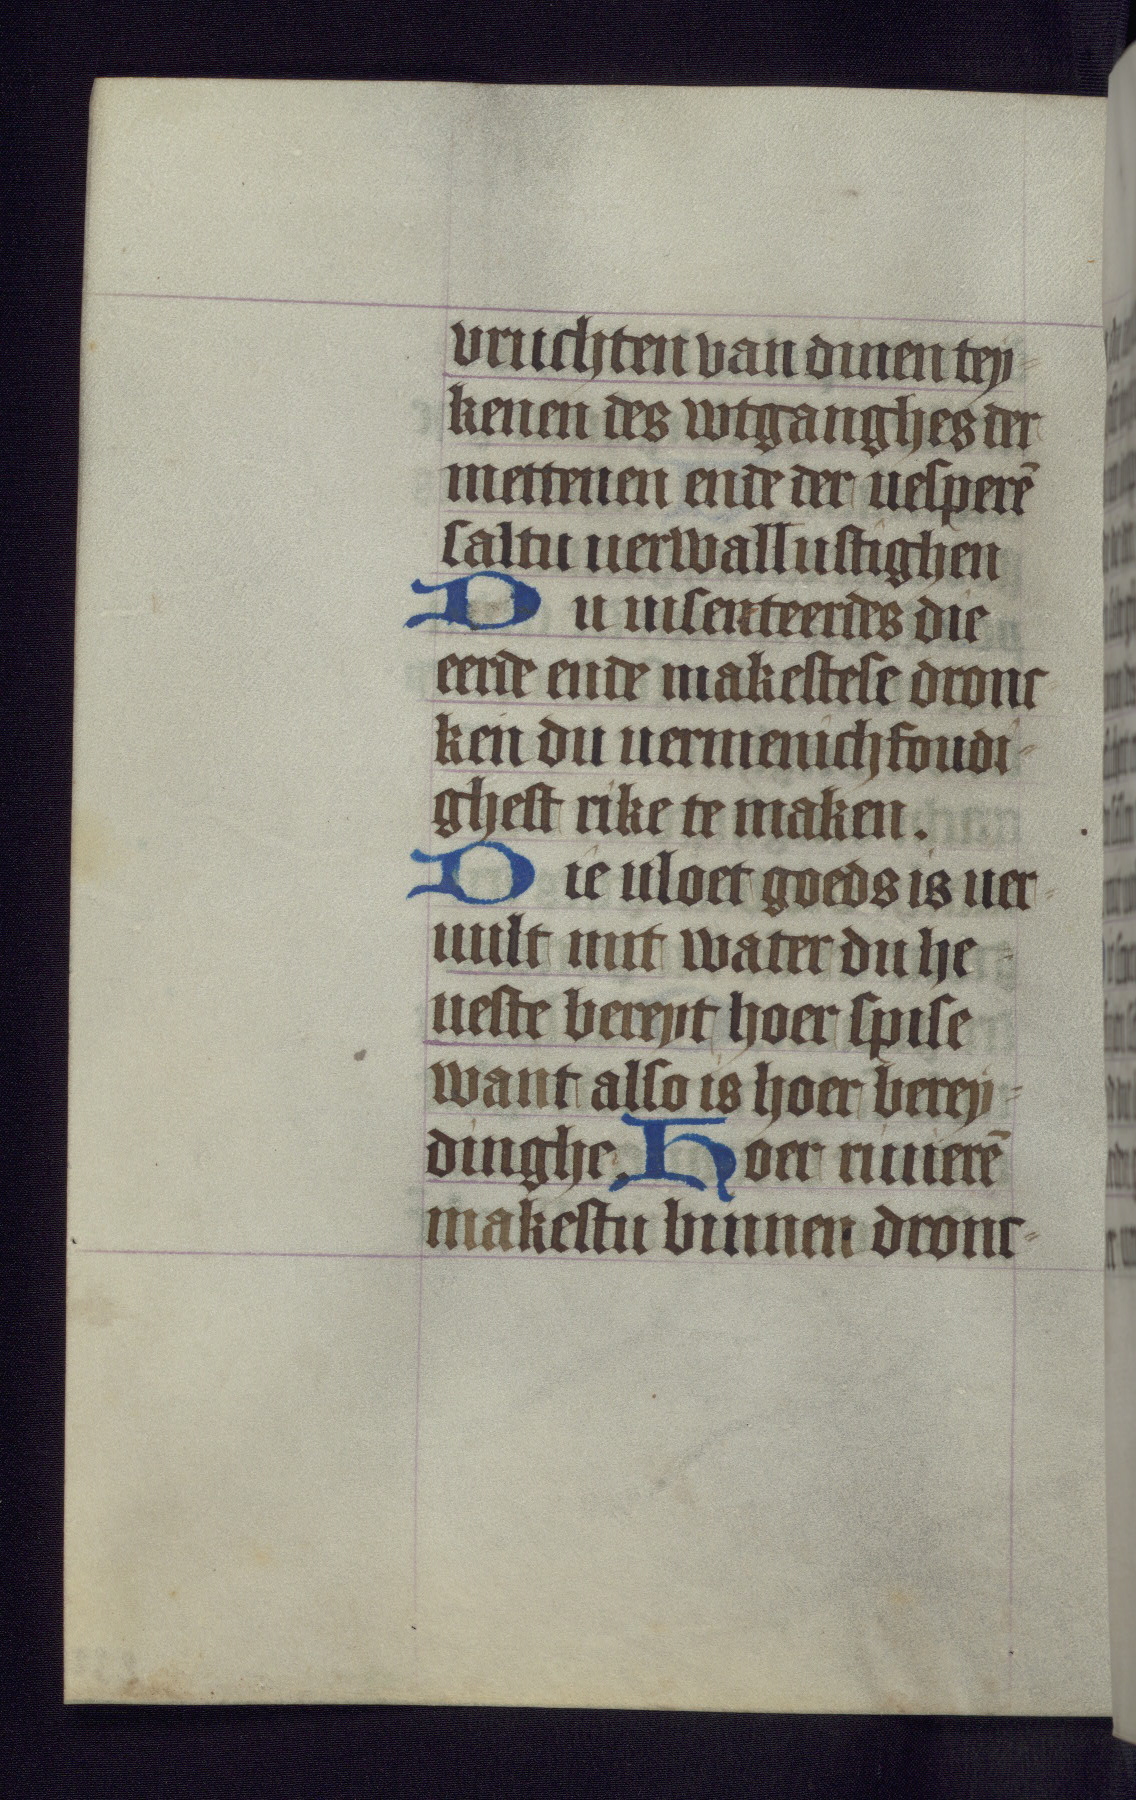 vruchten van dinen tey-
kenen des wtganghes der
mettenen ende der uesperē
saltu uerwallustighen
Du uisenteerdes die
eerde ende makestese dronc-
ken du uermenichfoudi-
ghest rike te maken.
Die uloet goeds is uer-
uult mit water du he-
ueste bereyt hoer spise
want also is hoer berey-
dinghe. Hoer riuierē
makestu binnen dronc-